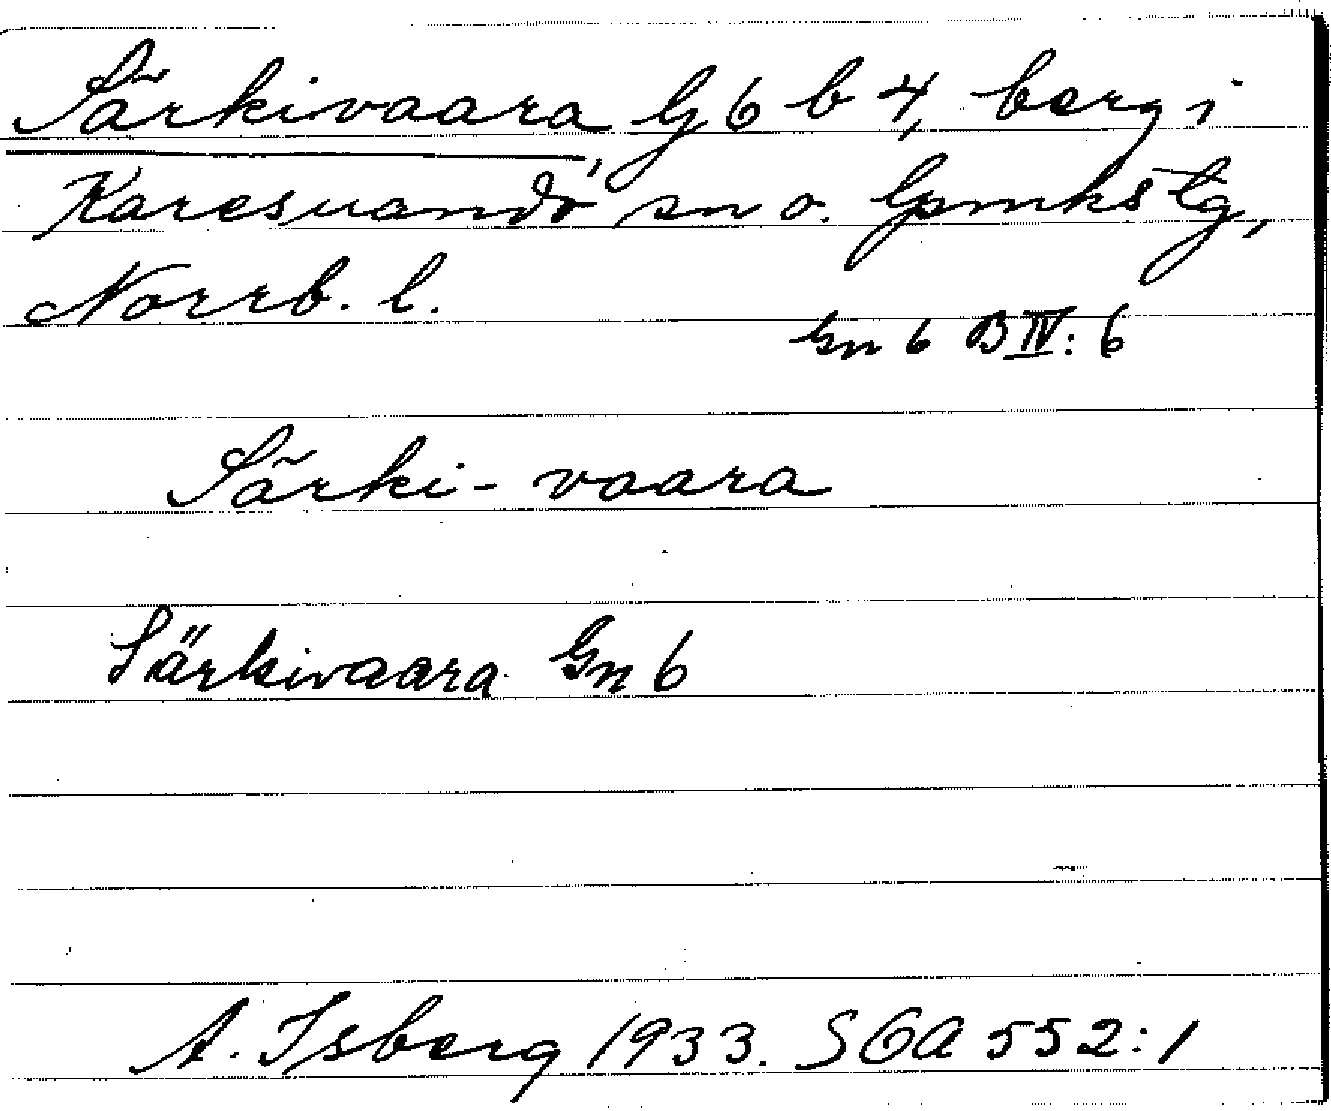 Särkivaara, G 6 b 4, berg i
Karesuando sn o. lpmkstg,
Norrb. l.
Gn 6 B IV: 6
Särki-vaara
Särkivaara Gn 6
A. Isberg 1933. SOA 552:1